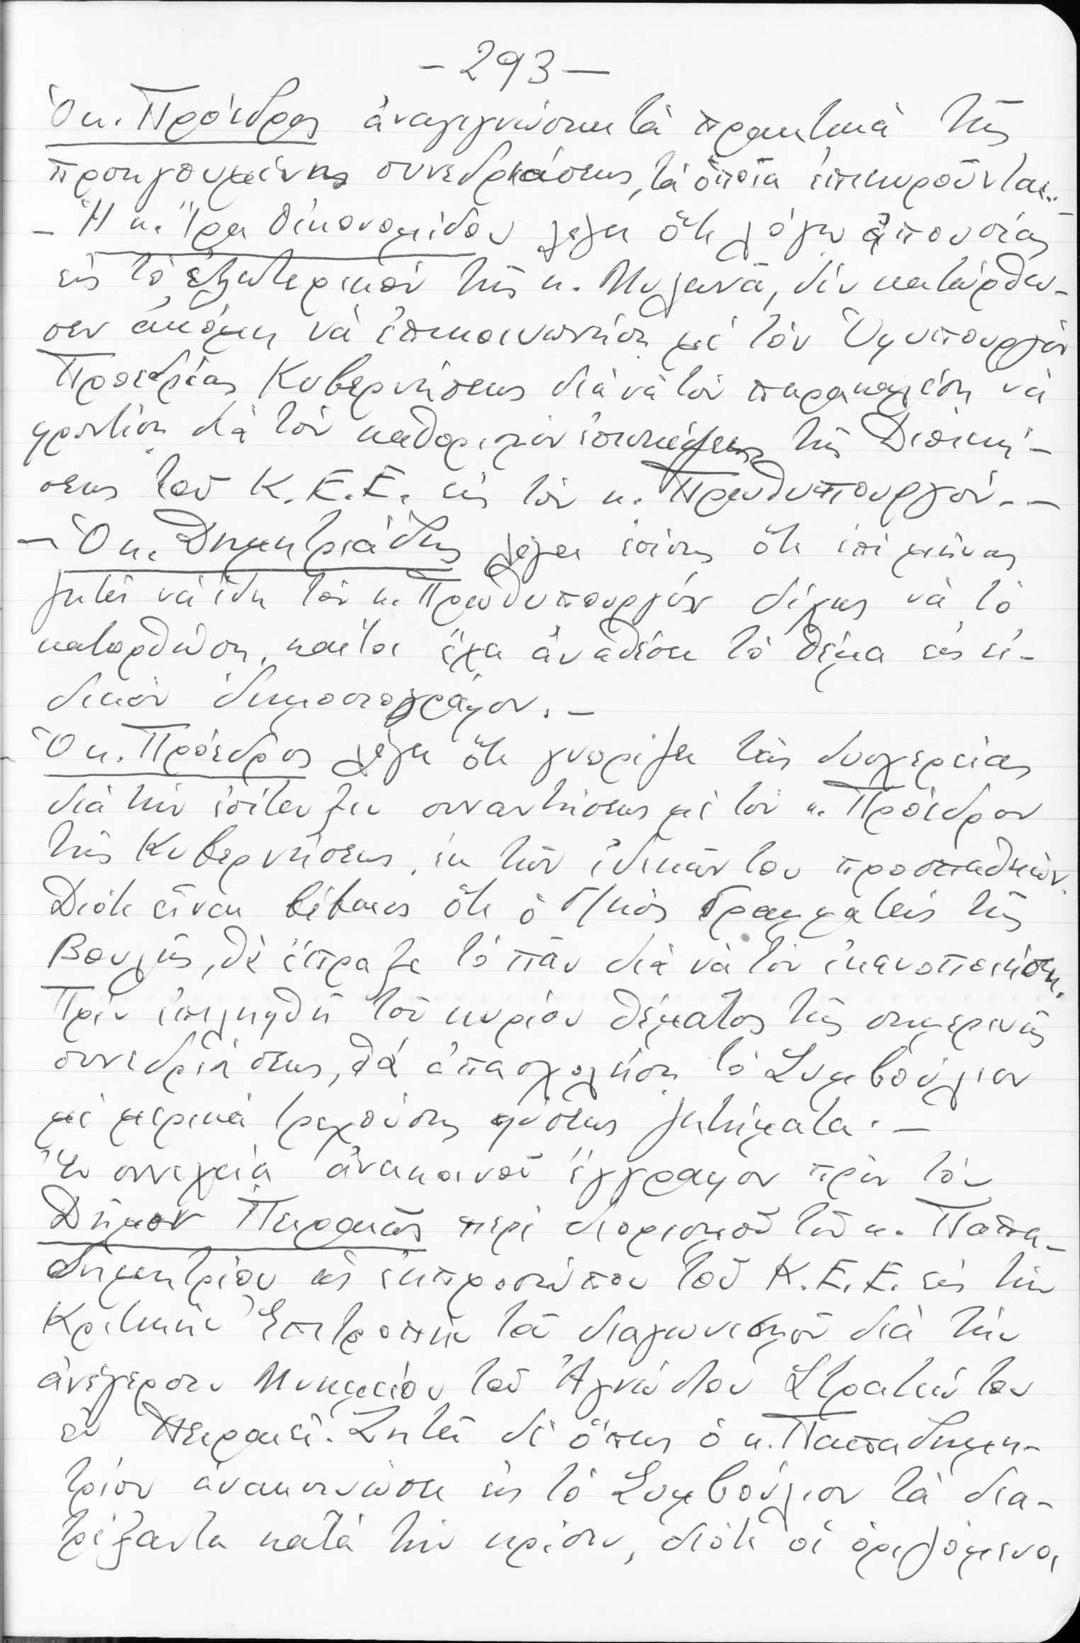 -293-
Ὁ κ. Πρόεδρος ἀναγιγνώσκει τά πρακτικά τῆς
προηγουμένης συνεδριάσεως, τά ὁποῖα ἐπικυροῦνται.-
- Ἡ κ. Ἴρα Οἰκονομίδου λέγει ὅτι λόγῳ ἀπουσίας
εἰς τό ἐξωτερικόν τῆς κ. Μυλωνᾶ, δέν κατώρθω-
σεν ἀκόμη νά ἐπικοινωνήσῃ μέ τόν Ὑφυπουργόν
Προεδρίας Κυβερνήσεως διά νά τόν παρακαλέσῃ νά
φροντίσῃ διά τόν καθορισμόν ἐπισκέψεως τῆς Διοική-
σεως τοῦ Κ.Ε.Ε. εἰς τόν κ. Πρωθυπουργόν.-
- Ὁ κ. Δημητριάδης λέγει ἐπίσης ὅτι ἐπί μῆνας
ζητεῖ νά ἴδῃ τόν κ. Πρωθυπουργόν δίχως νά τό
κατορθώσῃ, καίτοι ἔχει ἀναθέσει τό θέμα εἰς εἰ-
δικόν δημοσιογράφον.-
- Ὁ κ. Πρόεδρος λέγει ὅτι γνωρίζει τάς δυσχερείας
διά τήν ἐπίτευξιν συναντήσεως μέ τόν κ. Πρόεδρον
τῆς Κυβερνήσεως, ἐκ τῶν ἰδικῶν του προσπαθειῶν.
Διότι εἶναι βέβαιος ὅτι ὁ Γενικός Γραμματεύς τῆς
Βουλῆς, θά ἔπραξε τό πᾶν διά νά τόν ἱκανοποιήσῃ.
Πρίν ἐπιληφθῇ τοῦ κυρίου θέματος τῆς σημερινῆς
συνεδριάσεως, θά ἀπασχολήσῃ τό Συμβούλιον
μέ μερικά τρεχούσης φύσεως ζητήματα.-
Ἐν συνεχείᾳ ἀνακοινοῖ ἔγγραφον πρός τόν
Δῆμον Πειραιῶς περί διορισμοῦ τοῦ κ. Παπα-
δημητρίου ὡς ἐκπροσώπου τοῦ Κ.Ε.Ε. εἰς τήν
Κριτικήν Ἐπιτροπήν τοῦ διαγωνισμοῦ διά τήν
ἀνέγερσιν Μνημείου τοῦ Ἀγνώστου Στρατιώτου
ἐν Πειραιεῖ. Ζητεῖ δέ ὅπως ὁ κ. Παπαδημη-
τρίου ἀνακοινώσῃ εἰς τό Συμβούλιον τά δια-
τρέξαντα κατά τήν κρίσιν, διότι οἱ ὁριζόμενοι